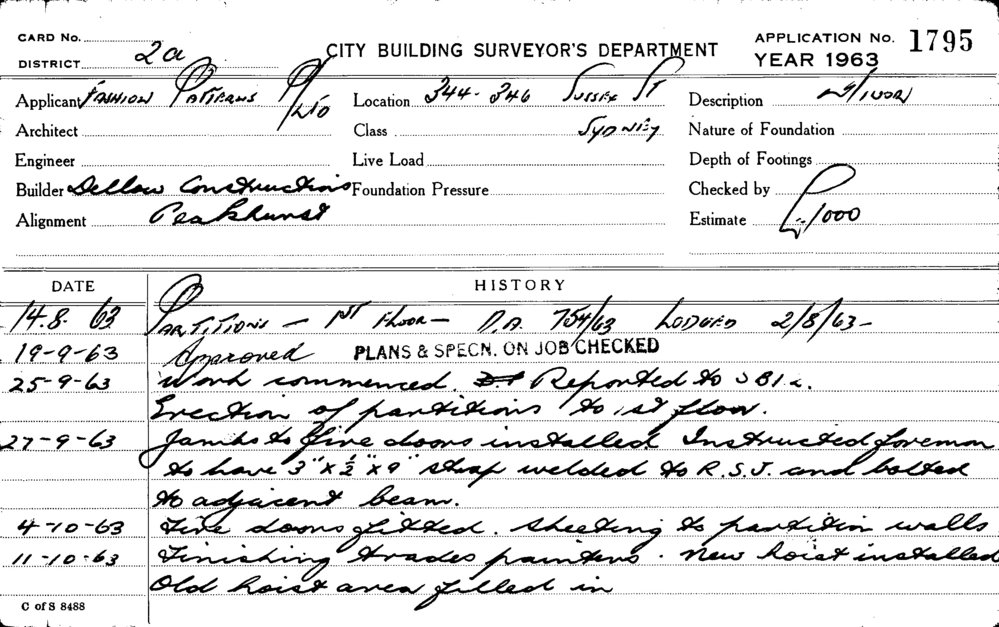 CARD No.
DISTRICT 2a
CITY BUILDING SURVEYOR'S DEPARTMENT
APPLICATION No. 1795
YEAR 1963
Applicant Fashion Patterns P/Ltd
Location 344-346 Sussex St
Description
Architect
Class Sydney
Nature of Foundation
Engineer
Live Load
Depth of Footings
Builder Dellow Constructions
Foundation Pressure
Checked by
Alignment Peakhurst
Estimate £1000
DATE HISTORY
14.8.63 Partitions - 1st Floor - D.A. 754/63 Lodged 2/8/63-
19-9-63 Approved PLANS & SPECN. ON JOB CHECKED
25-9-63 Work commenced. Reported to
Erection of partitions to 1st floor.
27-9-63 Jambs to fire doors installed. Instructed foreman
to have 3"x½"x9" strap welded to R.S.J. and bolted
to adjacent beam.
4-10-63 Fire doors fitted. Sheeting to partition walls
11-10-63 Finishing trades painters. New hoist installed
Old hoist area filled in
C of S 8488